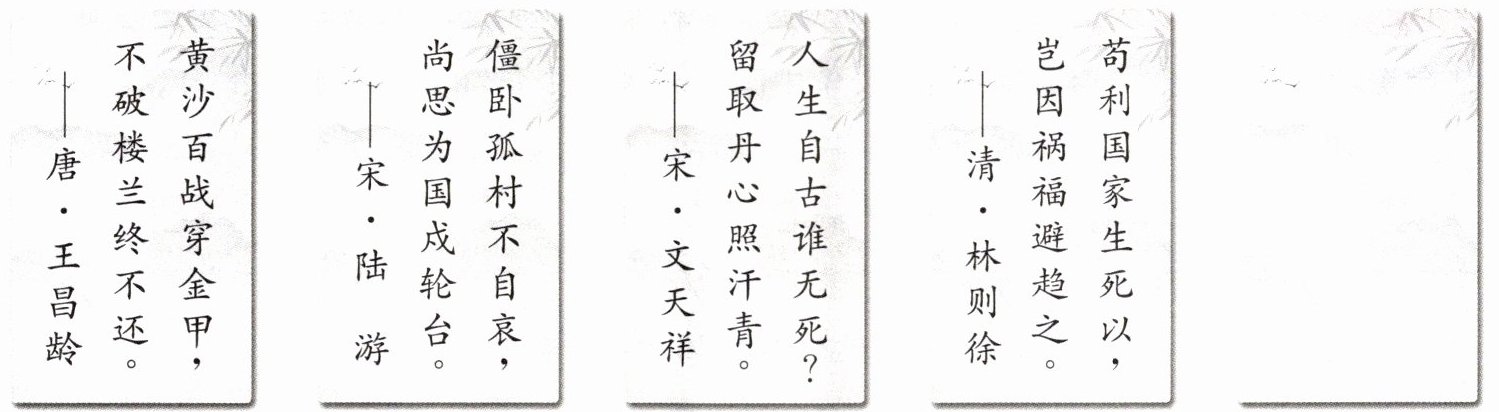 黄沙百战穿金甲，
不破楼兰终不还。
——唐·王昌龄
僵卧孤村不自哀，
尚思为国戍轮台。
——宋·陆 游
人生自古谁无死？
留取丹心照汗青。
——宋·文天祥
苟利国家生死以，
岂因祸福避趋之。
——清·林则徐